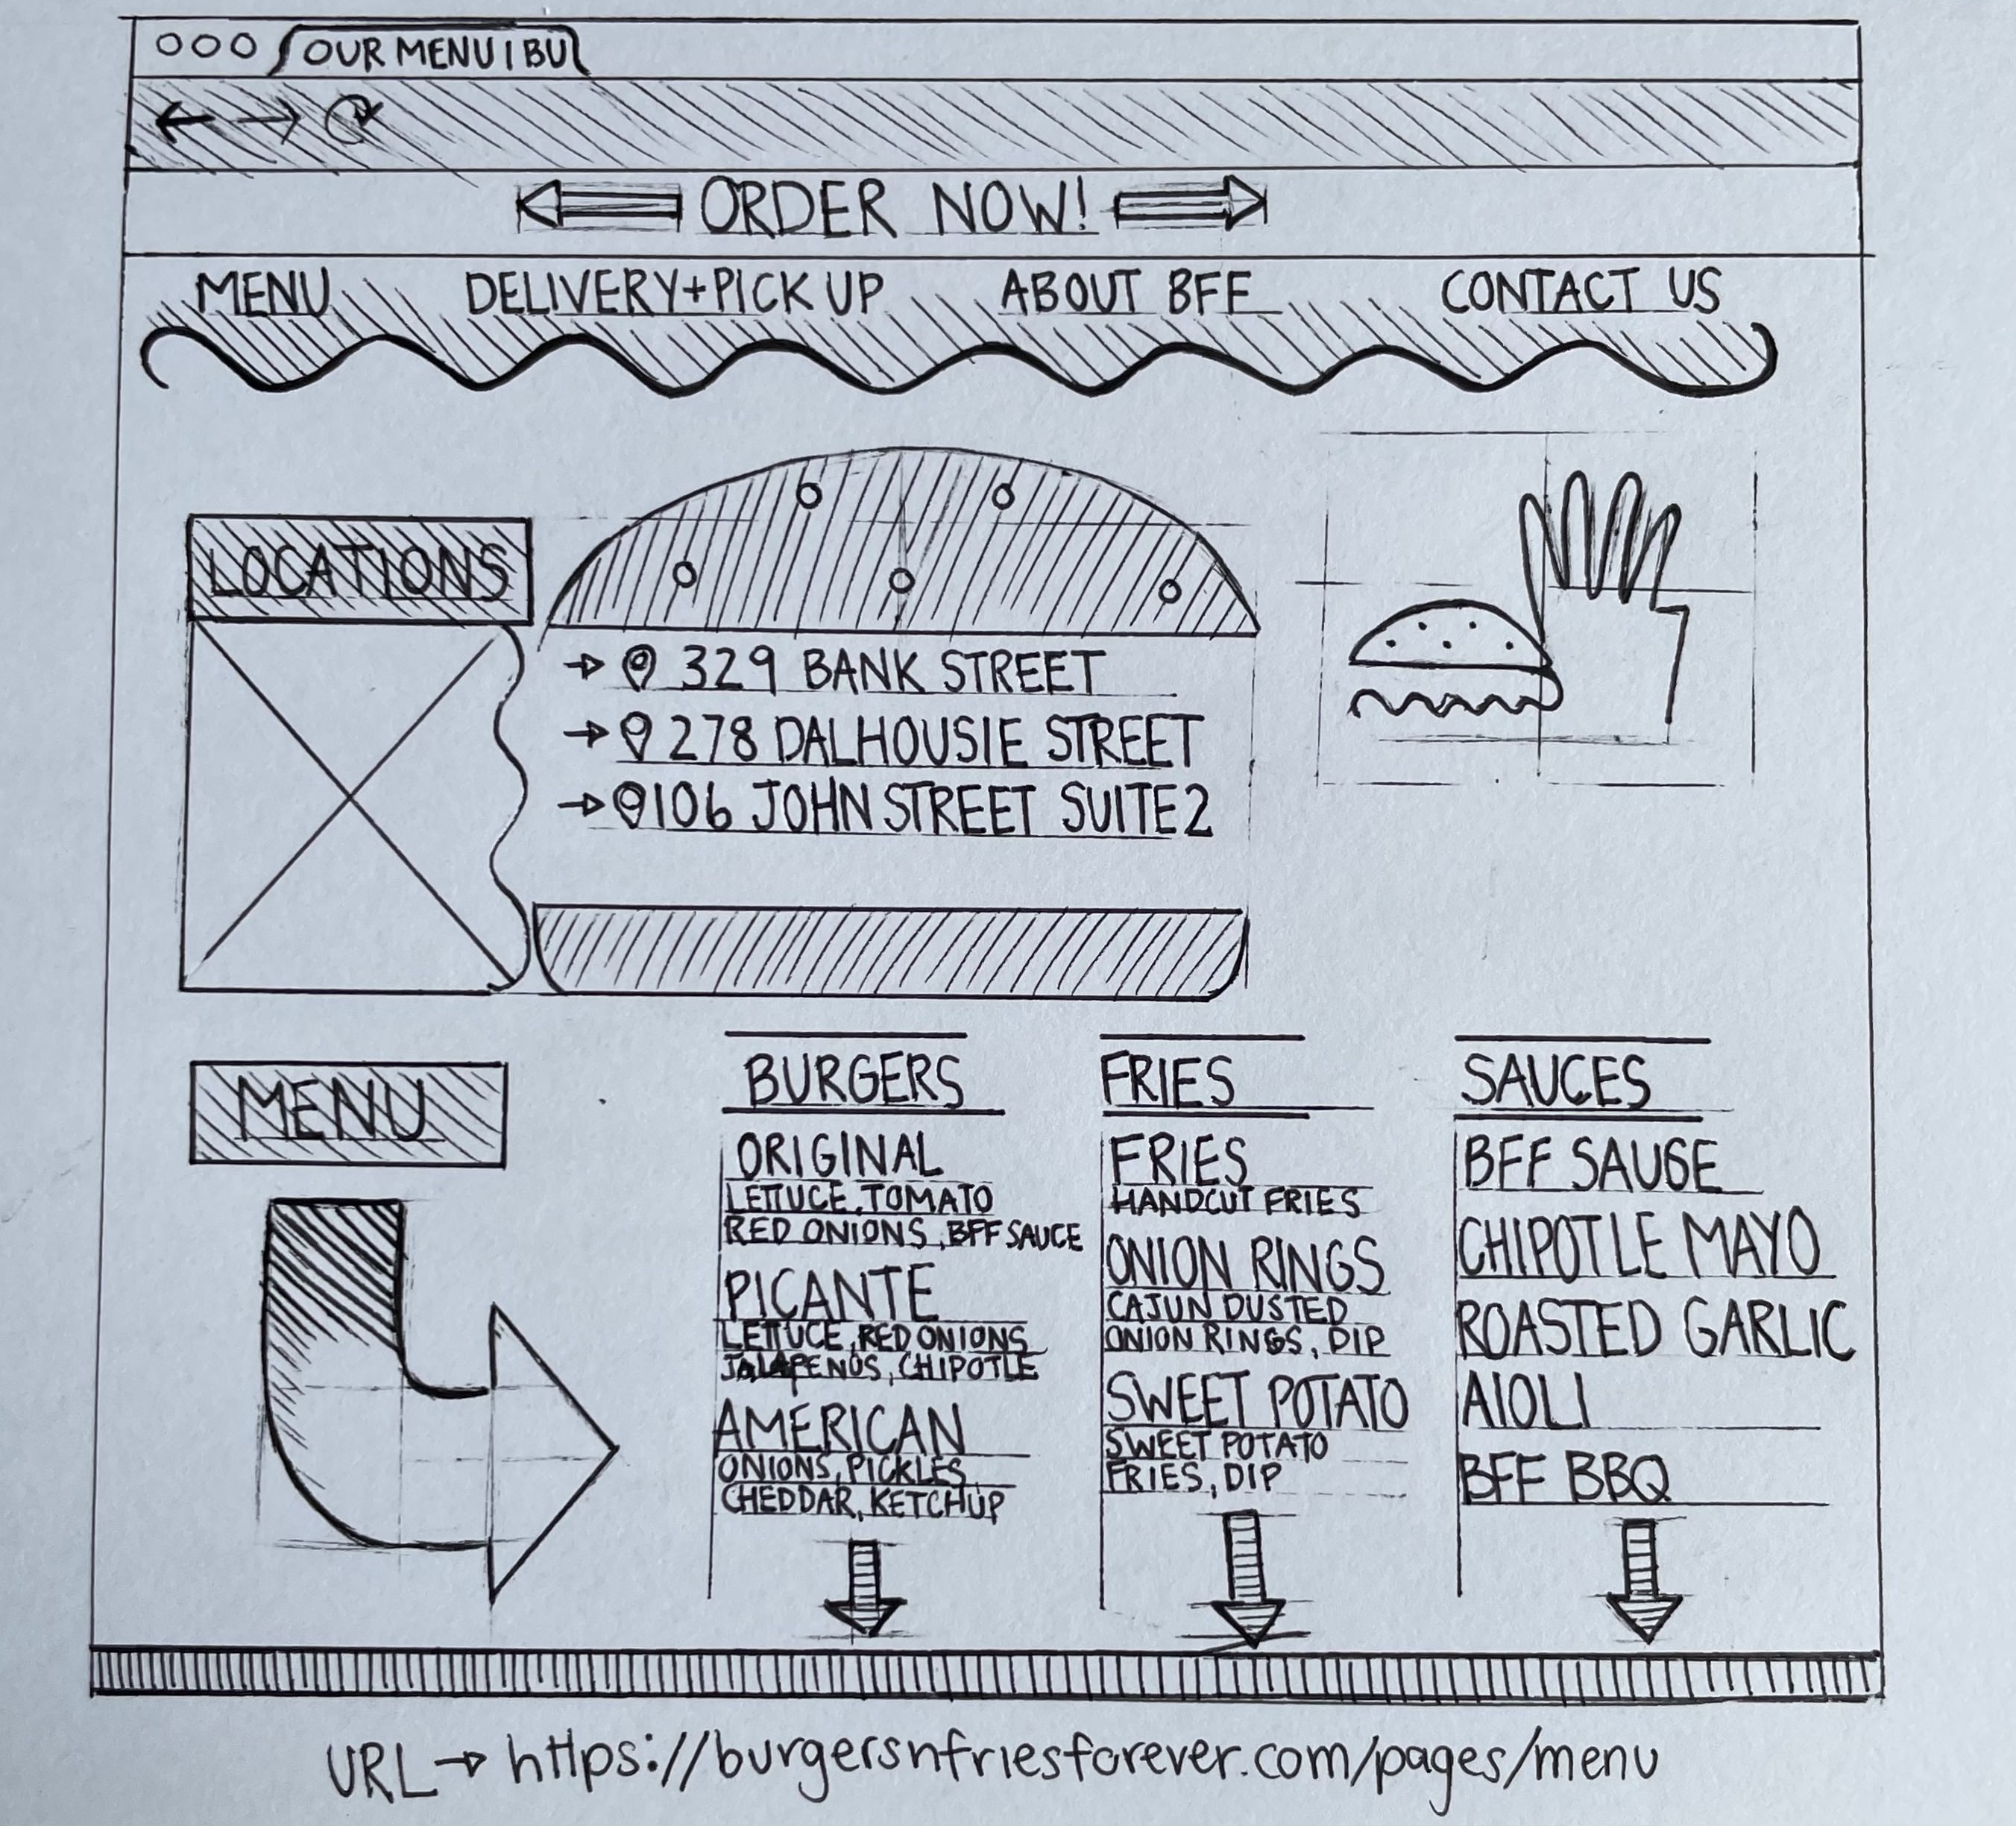 OUR MENU | BU
ORDER NOW!
MENU
DELIVERY+PICK UP
ABOUT BFF
CONTACT US
LOCATIONS
329 BANK STREET
278 DALHOUSIE STREET
106 JOHN STREET SUITE 2
MENU
BURGERS
ORIGINAL
LETTUCE, TOMATO
RED ONIONS, BFF SAUCE
PICANTE
LETTUCE, RED ONIONS
JALAPENOS, CHIPOTLE
AMERICAN
ONIONS, PICKLES
CHEDDAR, KETCHUP
FRIES
FRIES
HANDCUT FRIES
ONION RINGS
CAJUN DUSTED
ONION RINGS, DIP
SWEET POTATO
SWEET POTATO
FRIES, DIP
SAUCES
BFF SAUCE
CHIPOTLE MAYO
ROASTED GARLIC
AIOLI
BFF BBQ
URL → https://burgersnfriesforever.com/pages/menu